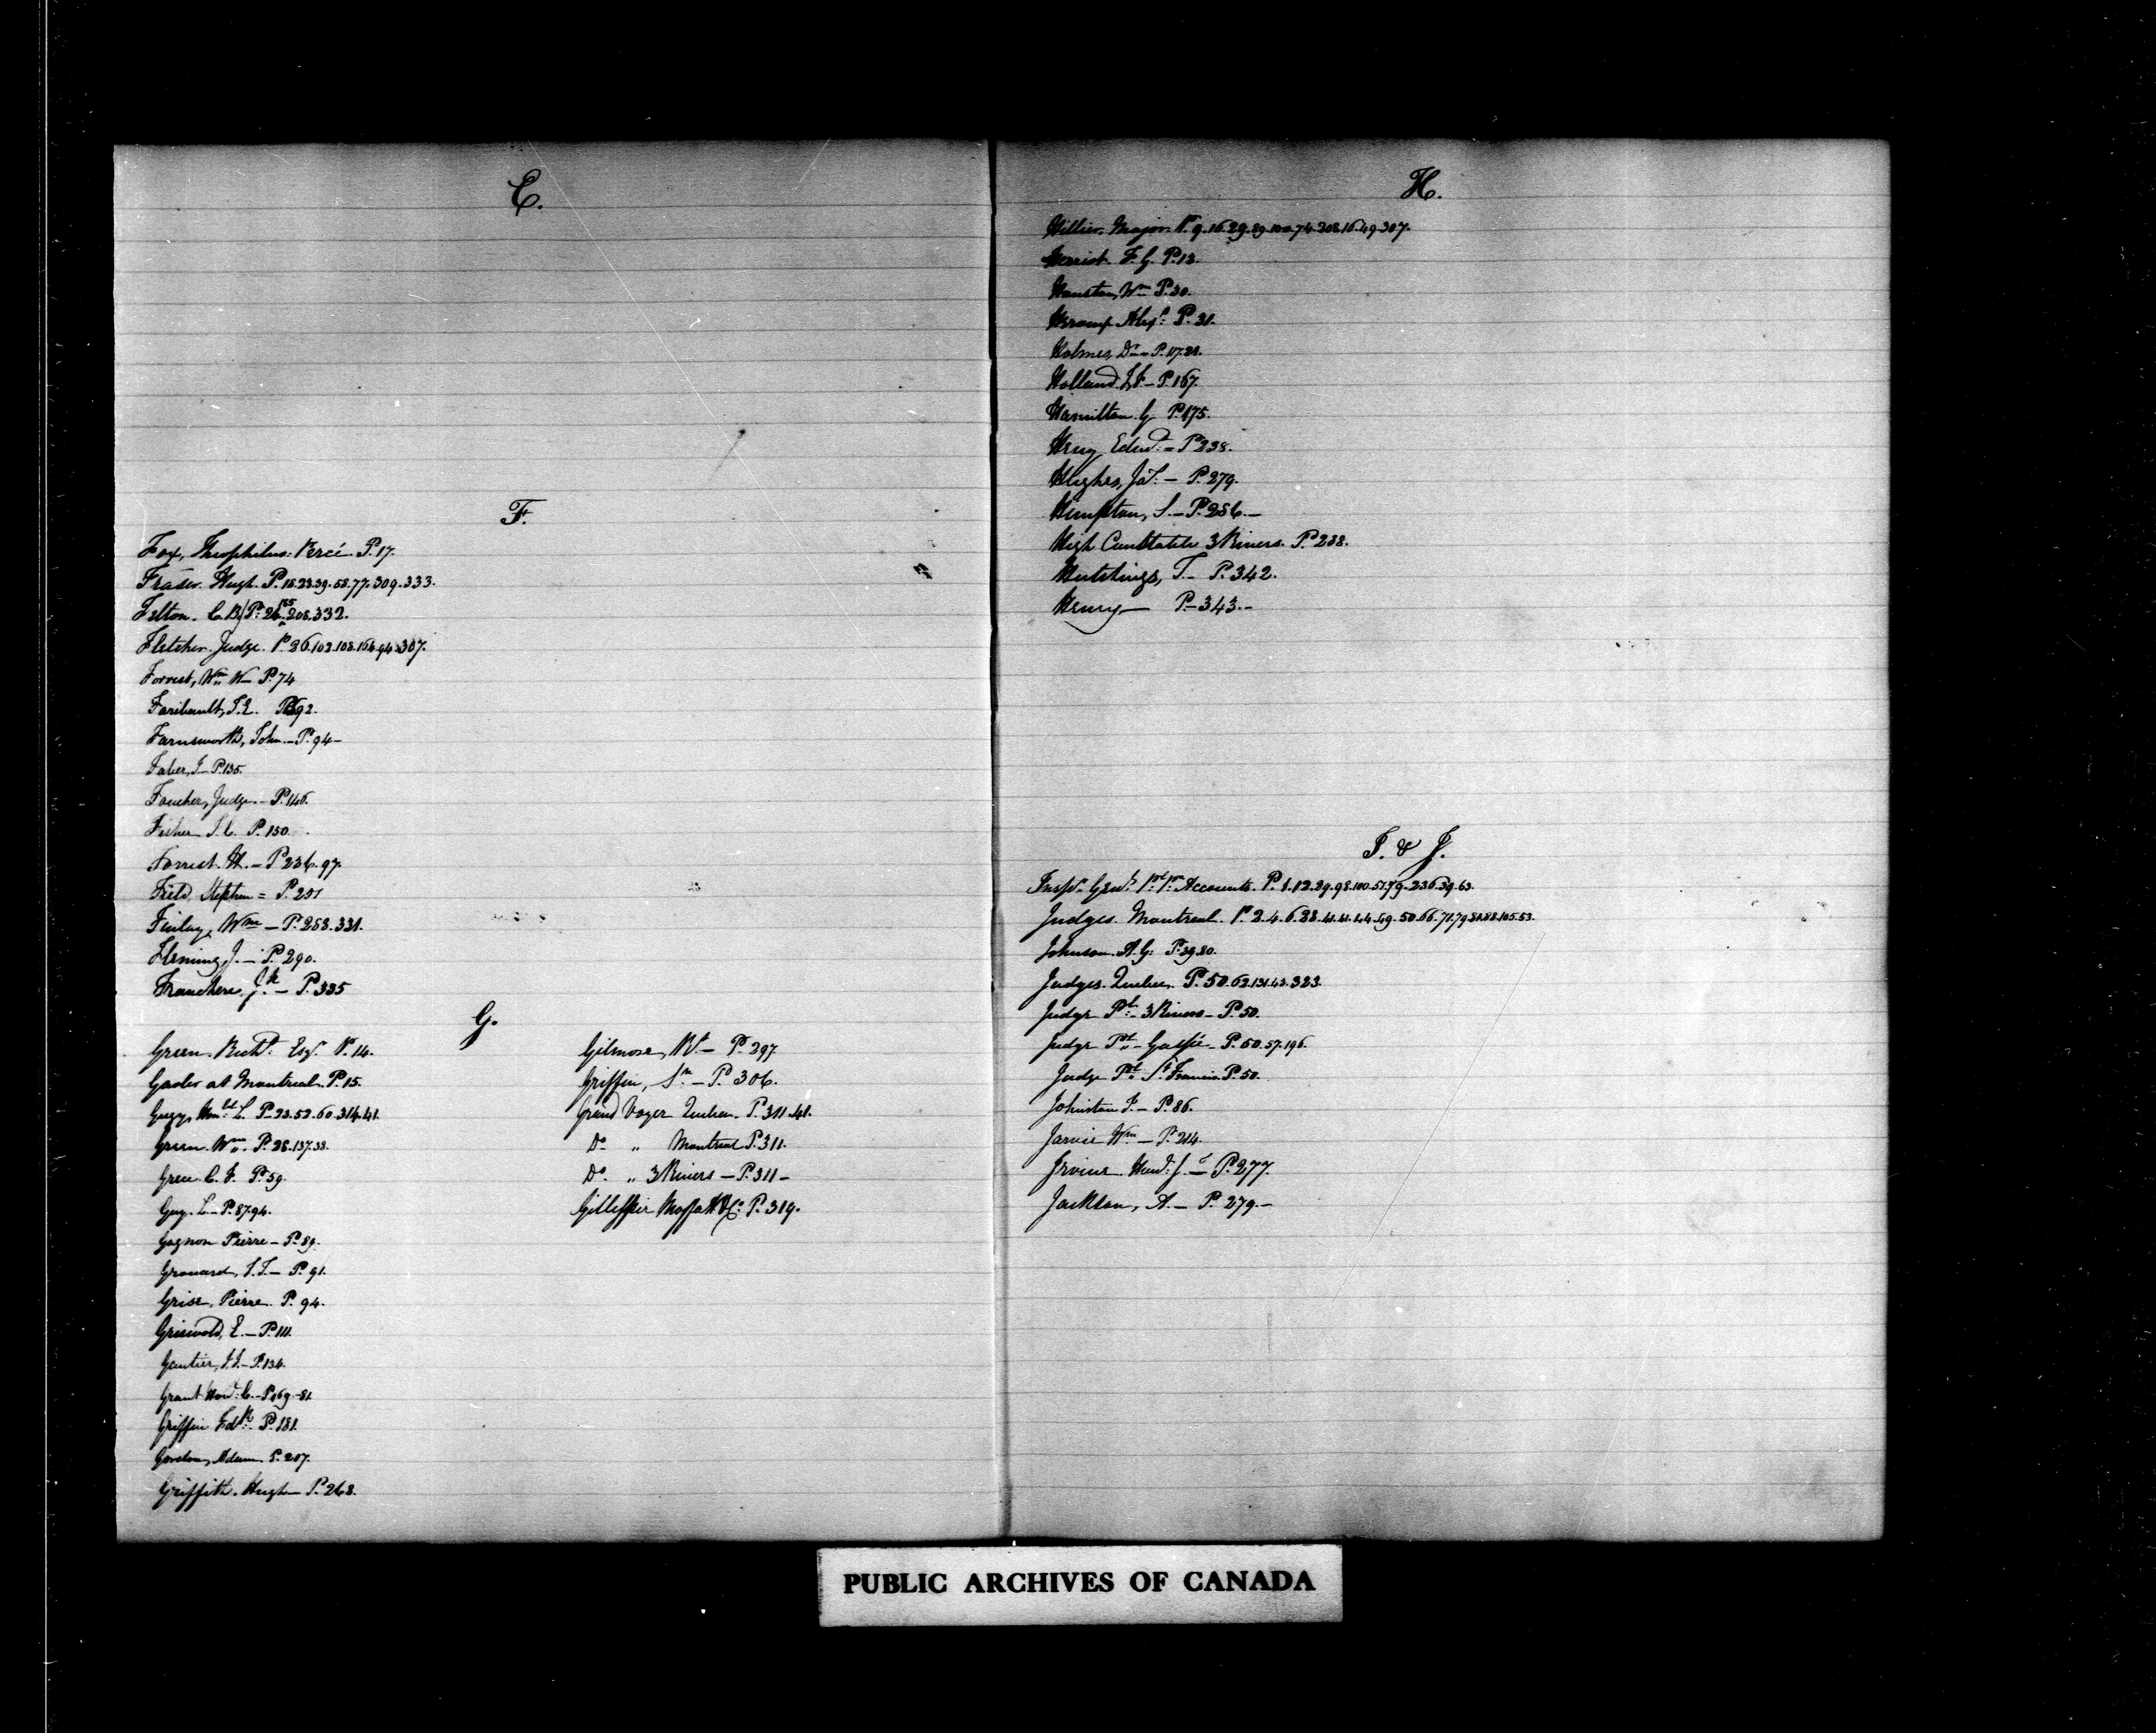 E.
F.
Fox, Theophilus. Percé. P. 17.
Fraser. Hugh. P. 18.23.39.58.77.309.333.
Felton. C. B. P. 26.155.208.332.
Fletcher. Judge. P. 26.102.108.164.94.307.
Forrest, Wm W— P. 74
Faribault, J. E. P. 92.
Farnsworth, John.— P. 94—
Faber, J.— P. 135.
Foucher, Judge.— P. 146.
Fisher J. C. P. 150.
Forrest. H.— P 236.97.
Field, Stephen = P. 251
Finlay, Wm — P. 253.331.
Fleming, J.— P. 290.
Franchere, J. — P. 335
G.
Green. Richd. Esqr. P. 14.
Gaoler at Montreal. P. 15.
Gugy, Honble L. P. 23.52.60.314.41.
Green. Wm. P. 28.137.33.
Green. C. F. P. 59.
Guy. L.— P. 87.94.
Gagnon Pierre— P. 89.
Grouard, J. T.— P. 91.
Grise, Pierre. P. 94.
Griswold, E.— P. 111.
Gautier, J. J.— P. 134.
Grant Hond. C.— P. 169-81.
Griffin Edk. P. 181.
Gordon, Adam P. 207.
Griffith. Hugh— P. 268.
Gilmore, R.— P. 297
Griffin, Sn.— P. 306.
Grand Voyer Quebec. P. 311.41.
Do. „ Montreal P. 311.
Do. „ 3 Rivers — P. 311—
Gillespie Moffatt & Co. P. 319.
H.
Hillier. Major. P. 9.16.29.89.100.74.208.16.49.307.
Heriot. F. G. P. 13.
Houston, Wm P. 30.
Alexr. P. 31.
Holmes, Dr.— P. 17.28.
Holland. J. F.— P. 167.
Hamilton. G. P. 175.
Henry Edwd. = P 238.
Hughes, Jas. — P. 279.
Hempton, S.— P. 286.—
High Constable 3 Rivers. P. 288.
Hutchings, T.— P. 342.
Henry— P.—343.—
I. & J.
Inspr. Genl. Accounts. P. 1.12.29.98.100.57.79.236.39.63.
Judges. Montreal. P. 2.4.6.28.41.41.44.49.50.66.71.79.81.88.105.53.
Johnson. A. G. P. 39.80.
Judges. Quebec. P. 50.62.131.43.323.
Judge Pl. 3 Rivers— P. 50.
Judge Pl.— Gaspé— P. 50.57.196.
Judge Pl. St. Francis. P. 50.
Johnston J.— P. 86.
Jarvis Wm — P. 214.
Irvine. Hond. J. — P. 277.
Jackson, A.— P. 279.—
PUBLIC ARCHIVES OF CANADA